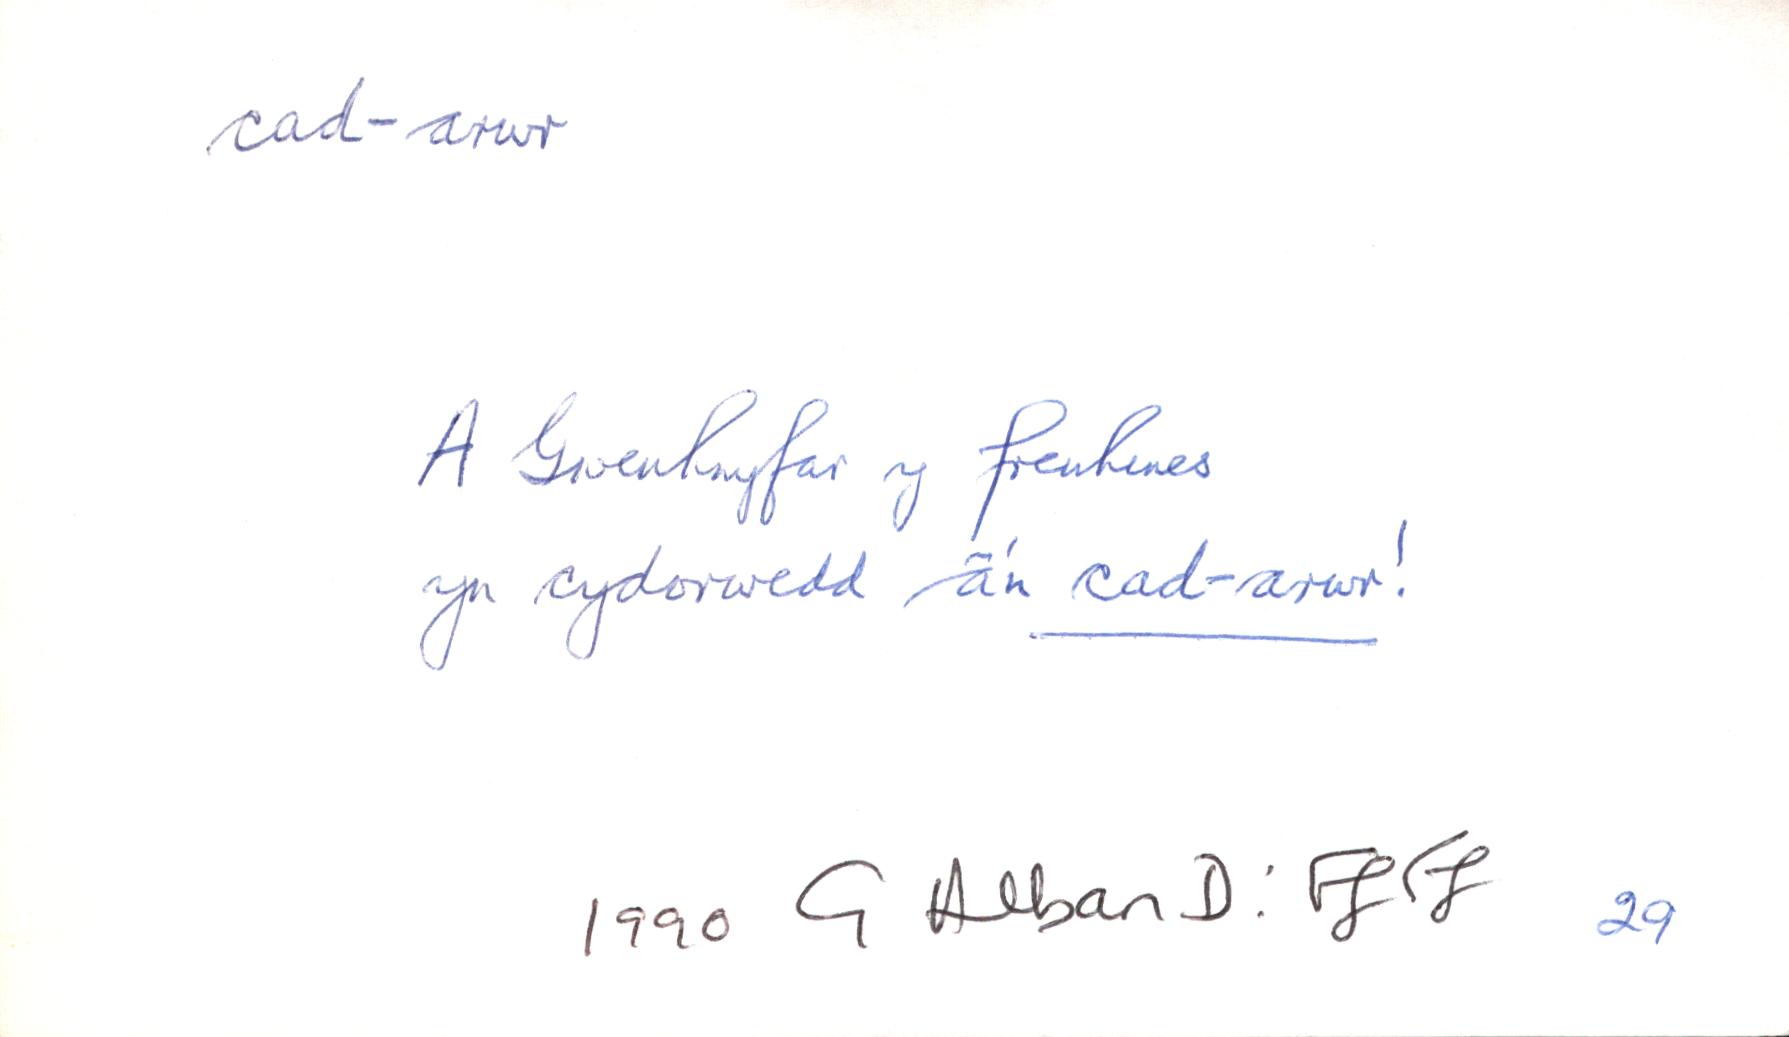 cad-arwr
A Gwenhwyfar y frenhines
yn cydorwedd â'n cad-arwr!
1990 G Alban D: FfFf 29